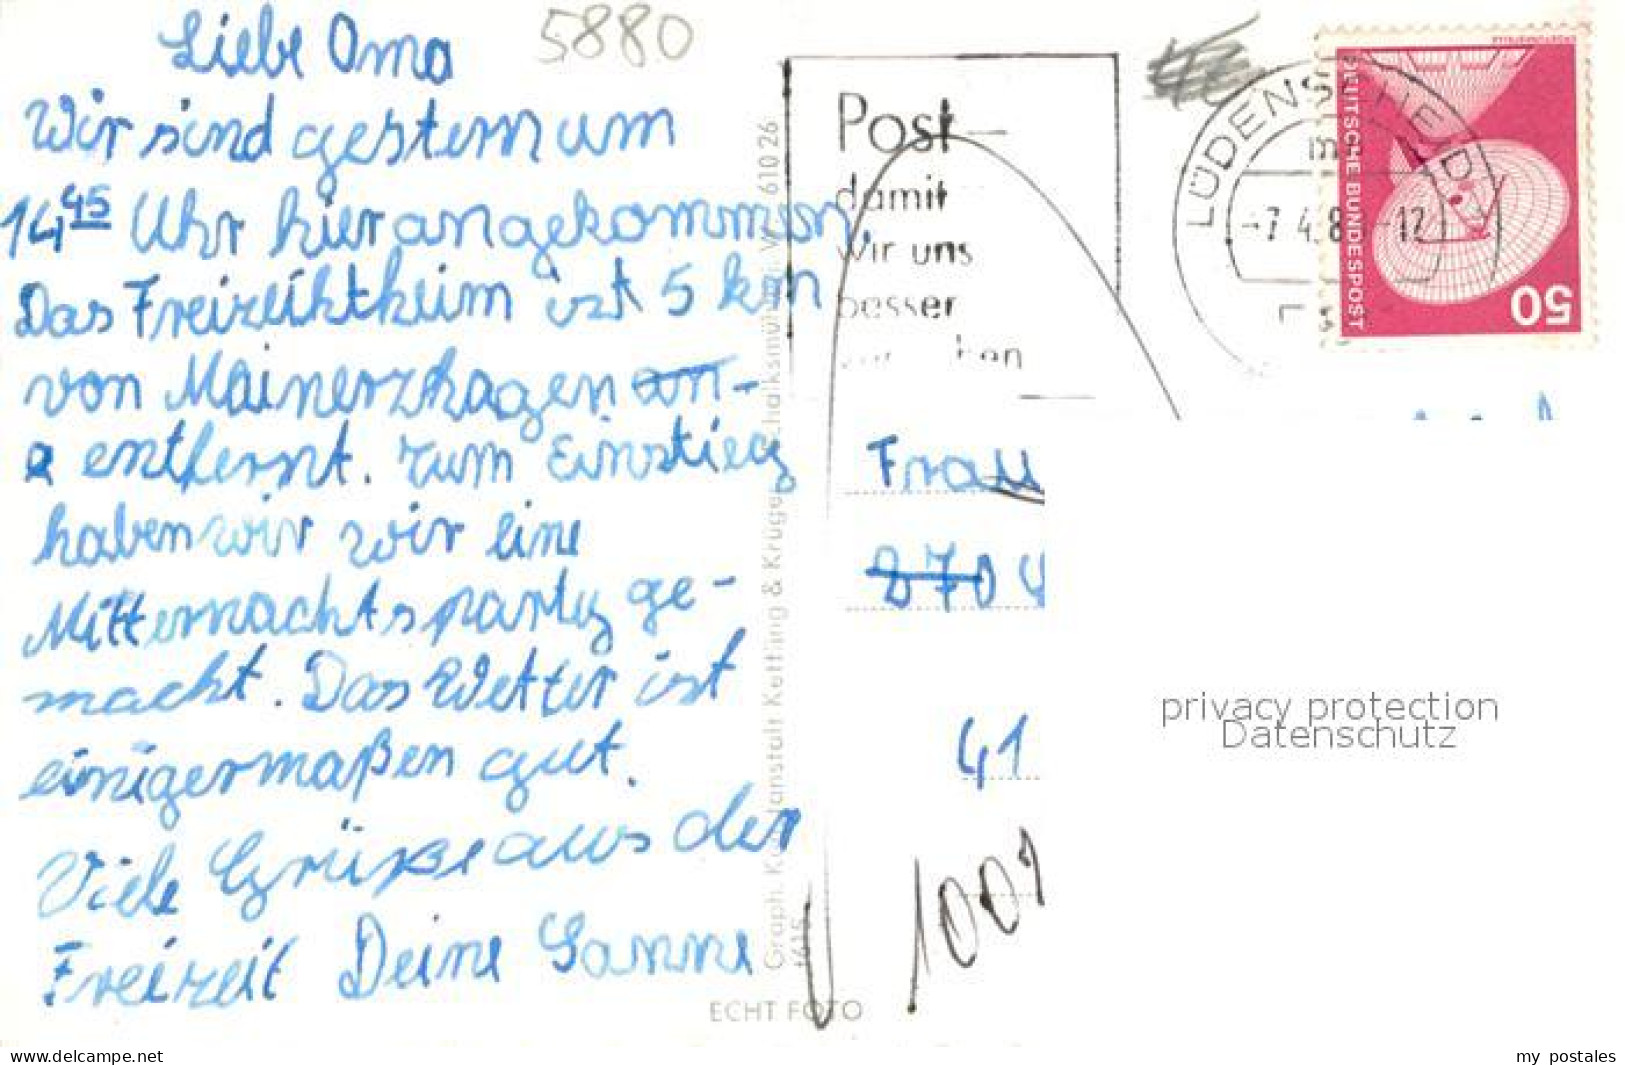 Liebe Oma
5880
Wir sind gestern um
14 45 Uhr hier angekommen.
Das Freizeihtheim ist 5 km
von Mainerzhagen an-
entfernt. Zum Einstieg
haben wir wir eine
Mitternachtsparty ge-
macht. Das Wetter ist
einigermaßen gut.
Viele Grüße aus der
Freizeit Deine Sanne
Graph. Kunstanstalt Ketting & Krüger, Schalksmühle i. W. 610 26
f615
ECHT FOTO
Post
damit
wir uns
besser
LÜDENSCHEID
-7.4.8 -12
DEUTSCHE BUNDESPOST
50
Frau
2870
41
1001
privacy protection
Datenschutz
www.delcampe.net
my_postales